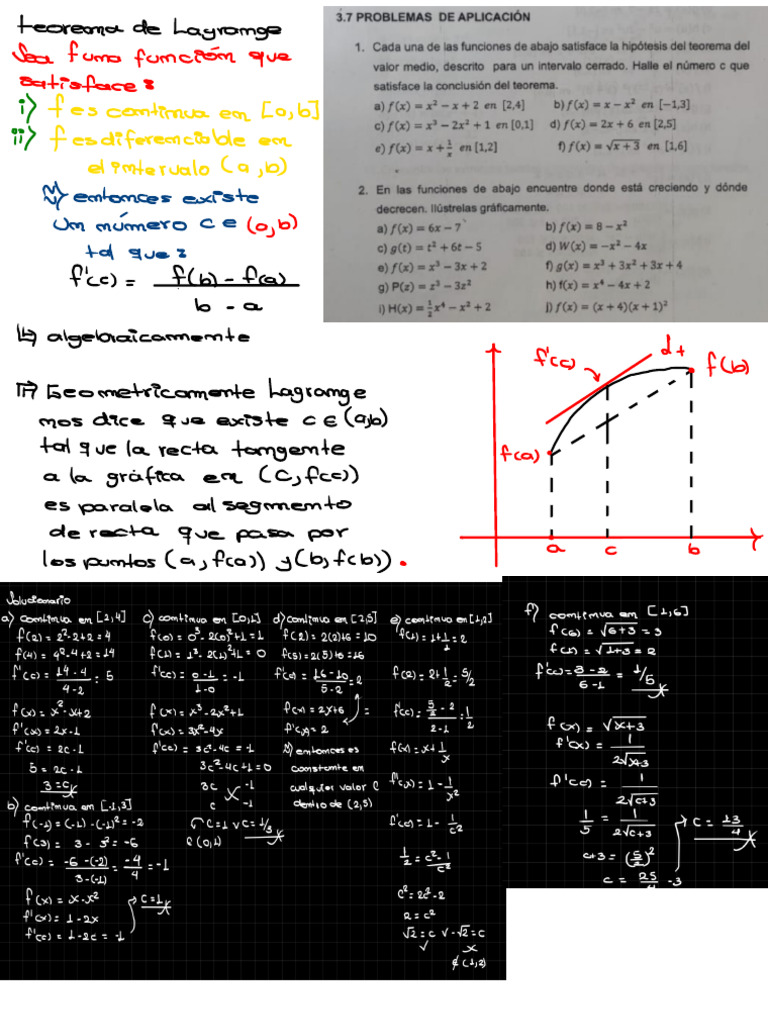 teorema de Lagrange
Sea f una función que
satisface:
i) f es continua en [a,b]
ii) f es diferenciable en
el intervalo (a,b)
entonces existe
un número c ∈ (a,b)
tal que:
f'(c) = f(b) - f(a) / b - a
↳ algebraicamente
Geometricamente Lagrange
nos dice que existe c ∈ (a,b)
tal que la recta tangente
a la gráfica en (c, f(c))
es paralela al segmento
de recta que pasa por
los puntos (a, f(a)) y (b, f(b)).
3.7 PROBLEMAS DE APLICACIÓN
1. Cada una de las funciones de abajo satisface la hipótesis del teorema del
valor medio, descrito para un intervalo cerrado. Halle el número c que
satisface la conclusión del teorema.
a) f(x) = x² − x + 2 en [2,4] b) f(x) = x − x² en [-1,3]
c) f(x) = x³ − 2x² + 1 en [0,1] d) f(x) = 2x + 6 en [2,5]
e) f(x) = x + 1/x en [1,2] f) f(x) = √x + 3 en [1,6]
2. En las funciones de abajo encuentre donde está creciendo y dónde
decrecen. Ilústrelas gráficamente.
a) f(x) = 6x − 7 b) f(x) = 8 − x²
c) g(t) = t² + 6t − 5 d) W(x) = −x² − 4x
e) f(x) = x³ − 3x + 2 f) g(x) = x³ + 3x² + 3x + 4
g) P(z) = z³ − 3z² h) f(x) = x⁴ − 4x + 2
i) H(x) = 1/2 x⁴ − x² + 2 j) f(x) = (x + 4)(x + 1)²
f'(c) dt f(b)
f(a)
a c b
Solucionario
a) continua en [2,4]
f(2) = 2²-2+2 = 4
f(4) = 4²-4+2 = 14
f'(c) = 14-4 / 4-2 = 5
f(x) = x²-x+2
f'(x) = 2x-1
f'(c) = 2c-1
5 = 2c-1
3 = c
b) continua en [-1,3]
f(-1) = (-1) - (-1)² = -2
f(3) = 3 - 3² = -6
f'(c) = -6-(-2) / 3-(-1) = -4/4 = -1
f(x) = x-x²
f'(x) = 1-2x
f'(c) = 1-2c = -1
c = 1
c) continua en [0,1]
f(0) = 0³-2(0)²+1 = 1
f(1) = 1³-2(1)²+1 = 0
f'(c) = 0-1 / 1-0 = -1
f(x) = x³-2x²+1
f'(x) = 3x²-4x
f'(c) = 3c²-4c = -1
3c²-4c+1 = 0
3c -1
c -1
c = 1 v c = 1/3
∈ (0,1)
d) continua en [2,5]
f(2) = 2(2)+6 = 10
f(5) = 2(5)+6 = 16
f'(c) = 16-10 / 5-2 = 2
f(x) = 2x+6
f'(x) = 2
entonces es
constante en
cualquier valor c
dentro de (2,5)
e) continua en [1,2]
f(1) = 1+1/1 = 2
f(2) = 2+1/2 = 5/2
f'(c) = 5/2 - 2 / 2-1 = 1/2
f(x) = x+1/x
f'(x) = 1-1/x²
f'(c) = 1-1/c²
1/2 = c²-1 / c²
c² = 2c²-2
2 = c²
√2 = c v -√2 = c
✓ x
∉ (1,2)
f) continua en [1,6]
f(6) = √6+3 = 3
f(1) = √1+3 = 2
f'(c) = 3-2 / 6-1 = 1/5
f(x) = √x+3
f'(x) = 1 / 2√x+3
f'(c) = 1 / 2√c+3
1/5 = 1 / 2√c+3
c+3 = (5/2)²
c = 25/4 - 3
c = 13/4